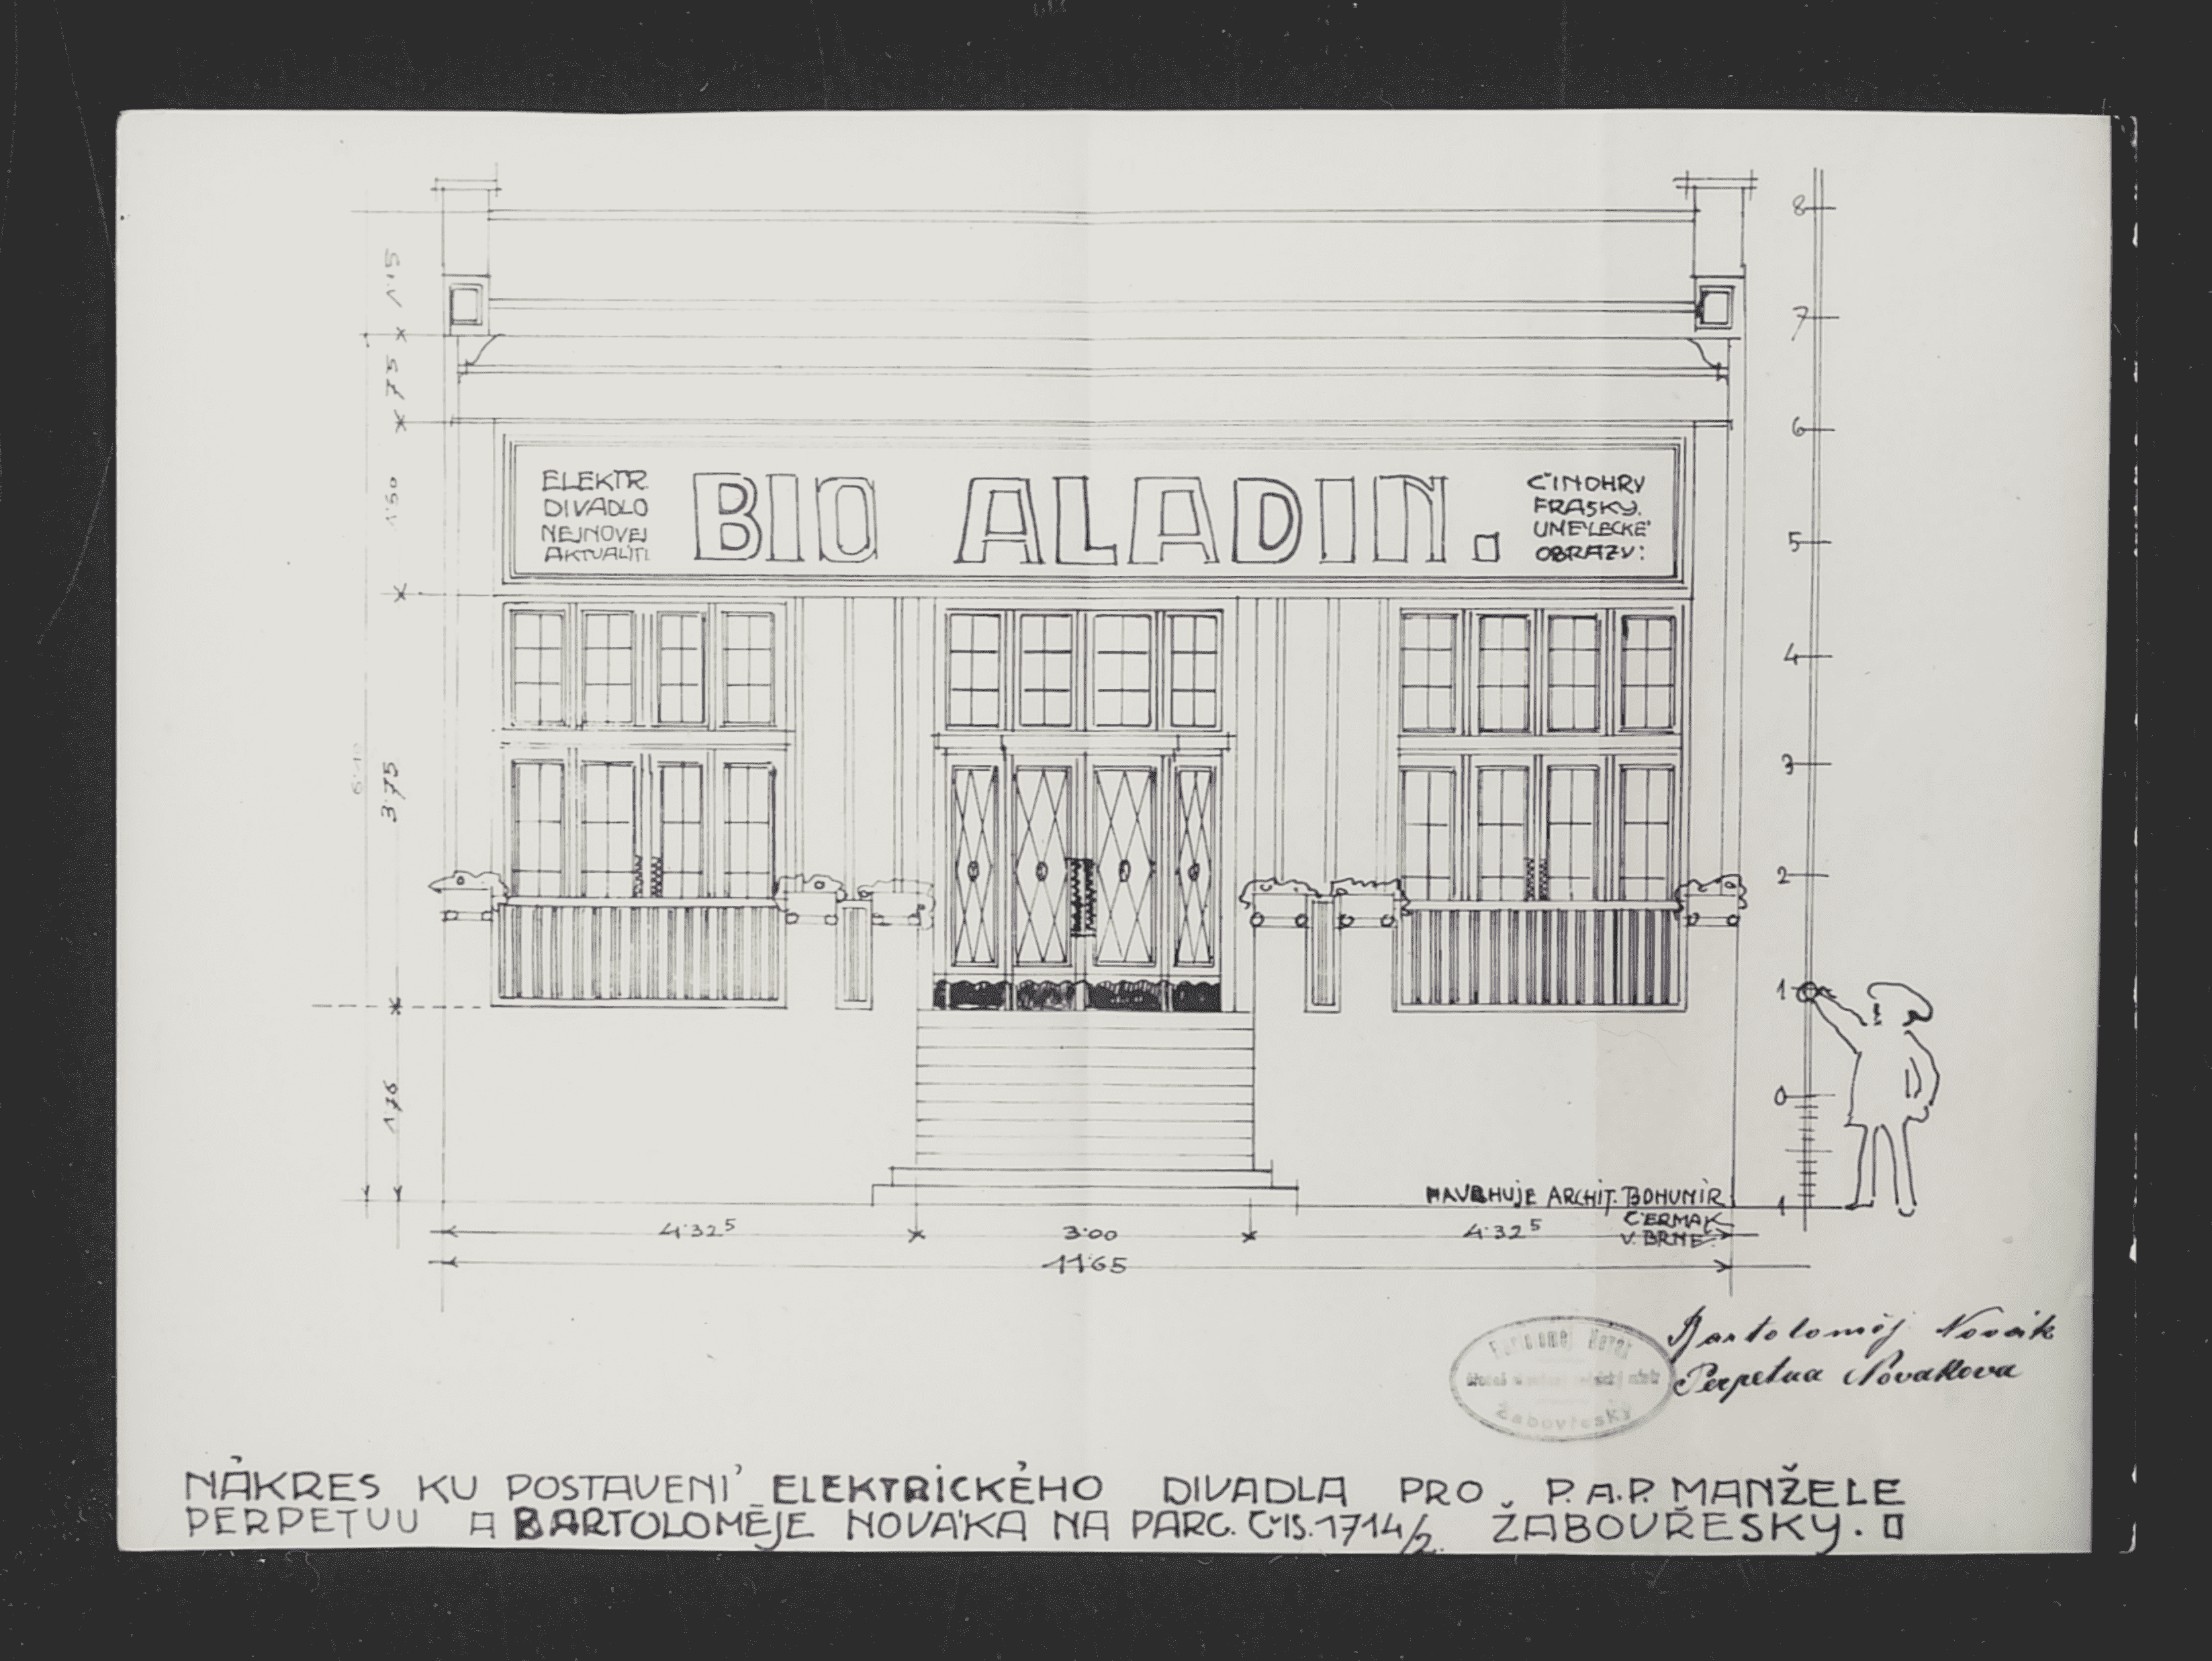 1·15
75
1·50
3·75
1·76
8
7
6
5
4
3
2
1
0
1
ELEKTR.
DIVADLO
NEJNOVEJ
AKTUALITI.
BIO ALADIN.
ČINOHRY
FRASKY.
UMĚLECKÉ
OBRAZY:
NAVRHUJE ARCHIT. BOHUMÍR
ČERMAK
V. BRNĚ.
4·32⁵
3·00
4·32⁵
11·65
Bartoloměj Novák
Perpetua Novakova
Žabovřesky
NÁKRES KU POSTAVENÍ ELEKTRICKÉHO DIVADLA PRO P.A.P. MANŽELE
PERPETUU A BARTOLOMĚJE NOVÁKA NA PARC. ČIS. 1714/2. ŽABOVŘESKY.